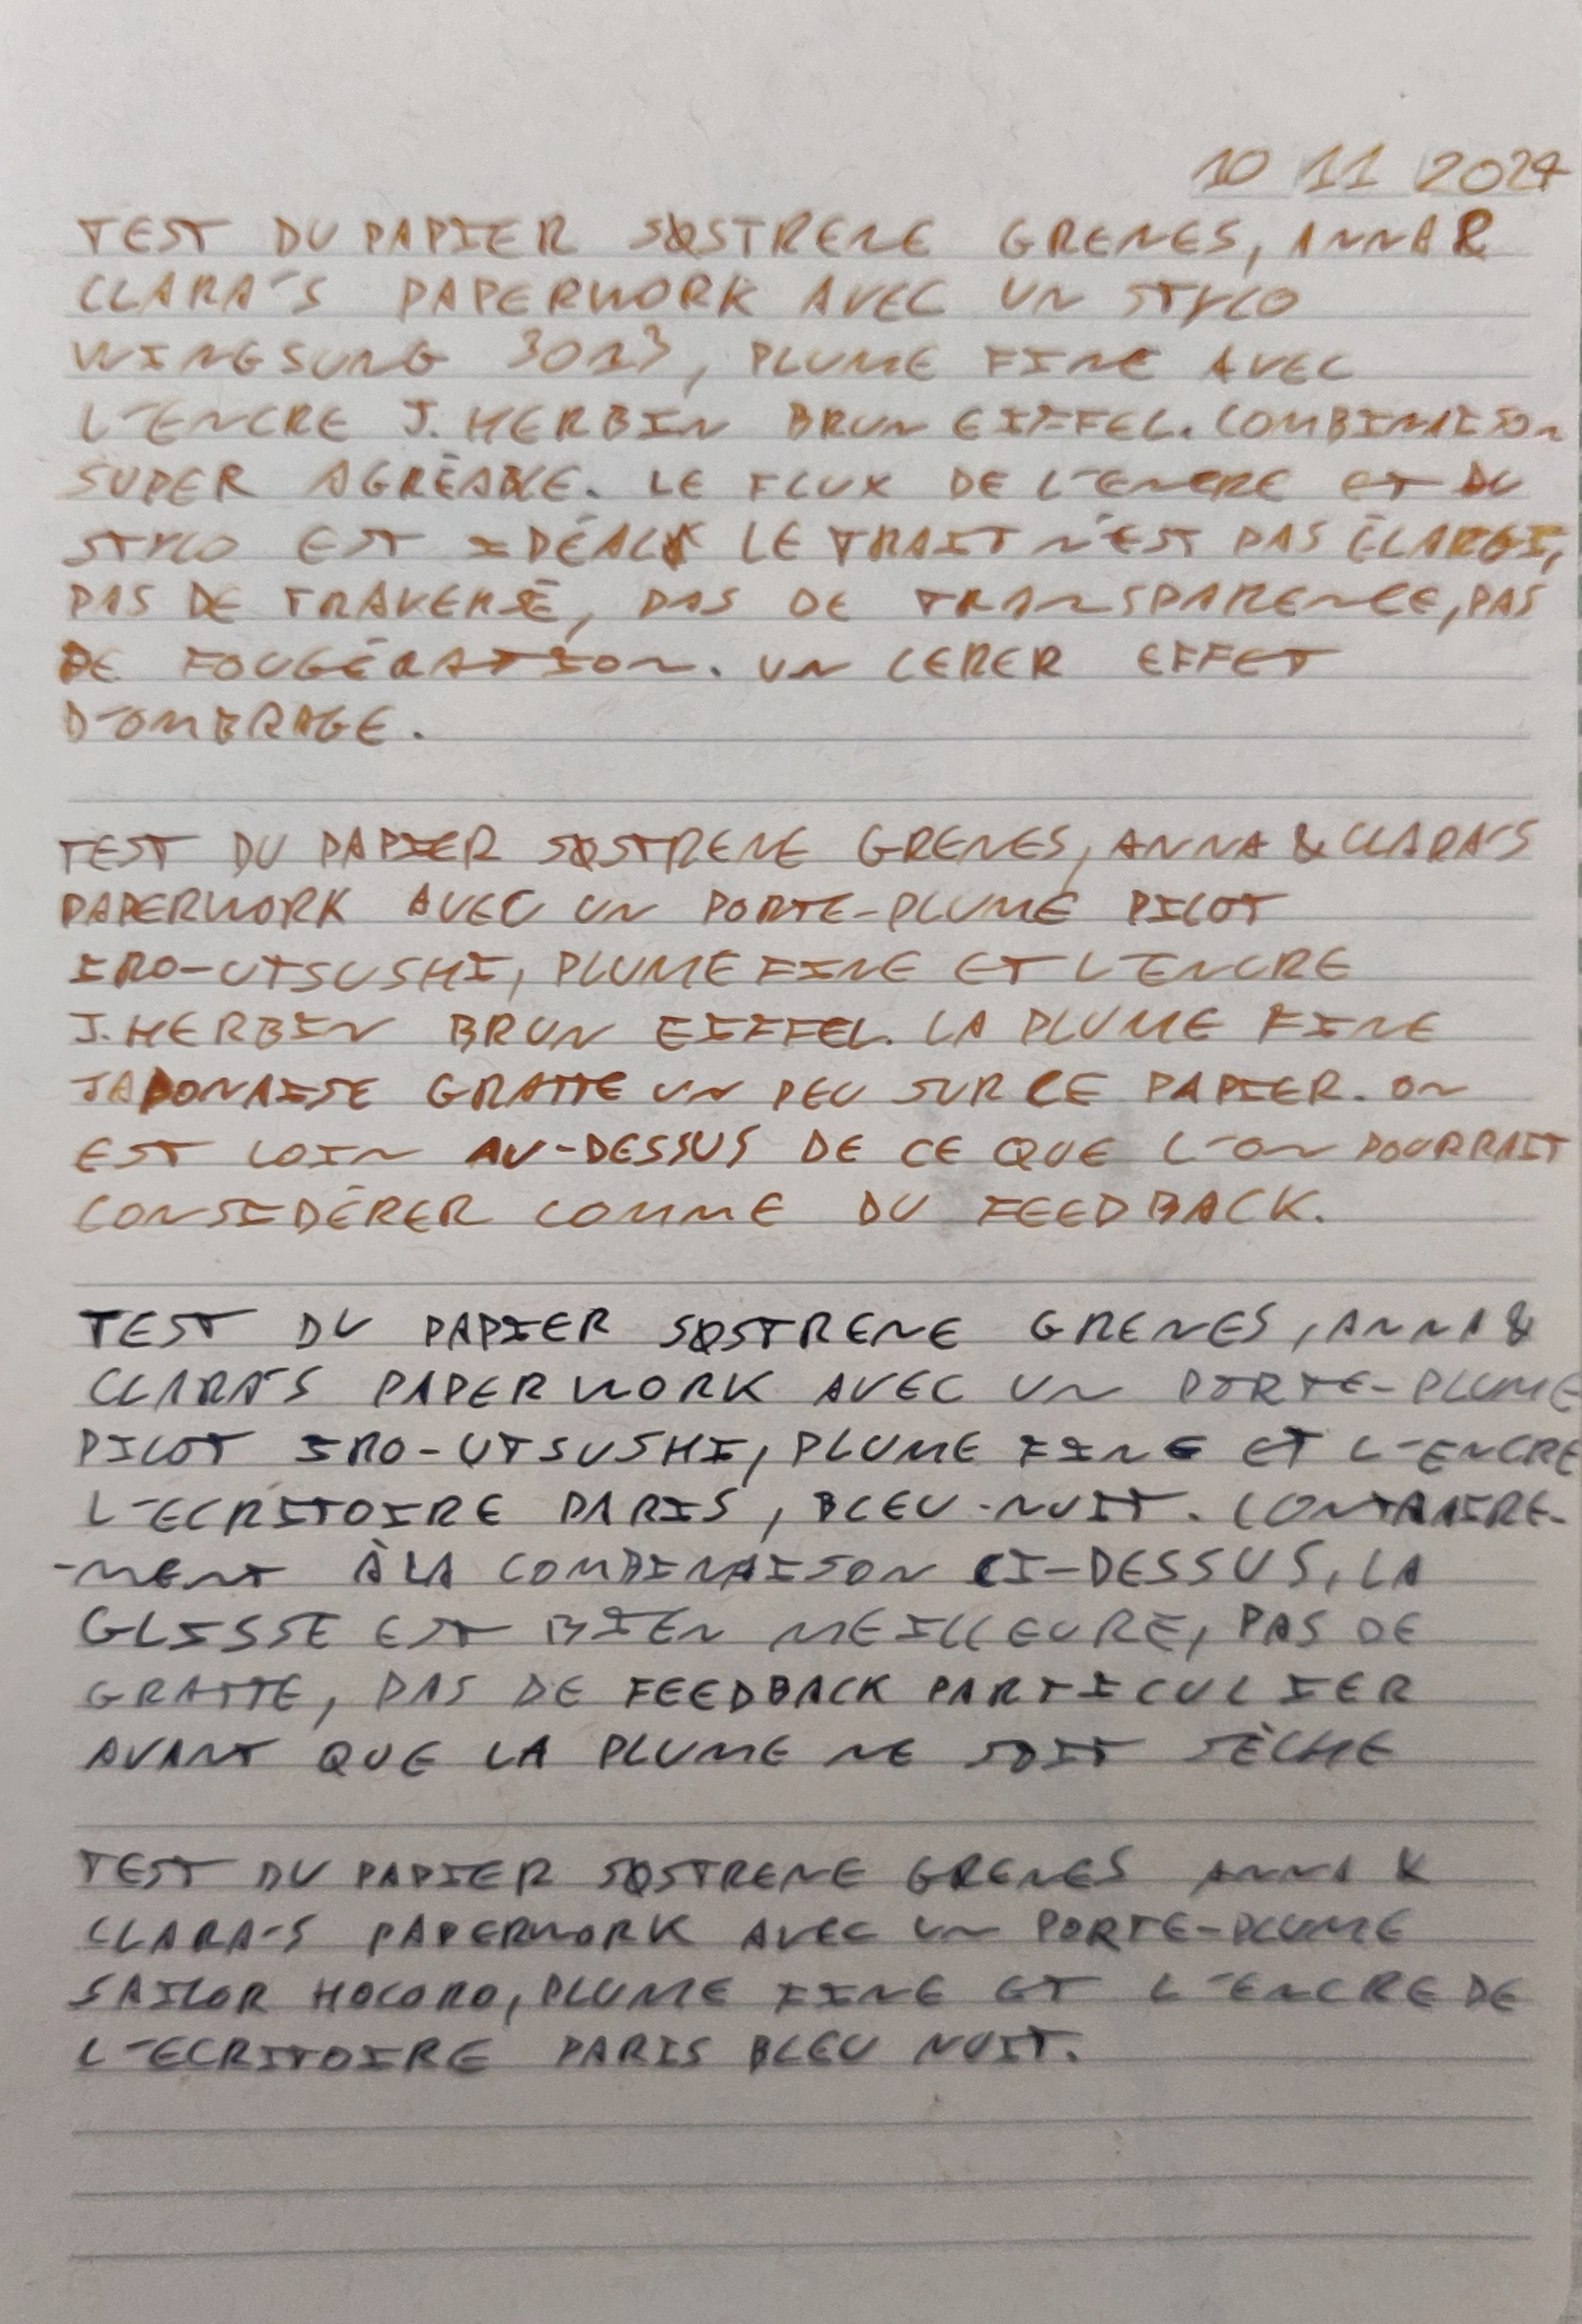 10 11 2024
TEST DU PAPIER SØSTRENE GRENES, ANNA &
CLARA'S PAPERWORK AVEC UN STYLO
WINGSUNG 3013, PLUME FINE AVEC
L'ENCRE J. HERBIN BRUN EIFFEL. COMBINAISON
SUPER AGRÉABLE. LE FLUX DE L'ENCRE ET DU
STYLO EST IDÉAL LE TRAIT N'EST PAS ÉLARGI,
PAS DE TRAVERSÉ, PAS DE TRANSPARENCE, PAS
DE FOUGÉRATION. UN LEGER EFFET
D'OMBRAGE.
TEST DU PAPIER SØSTRENE GRENES, ANNA & CLARA'S
PAPERWORK AVEC UN PORTE-PLUME PILOT
IRO-UTSUSHI, PLUME FINE ET L'ENCRE
J. HERBIN BRUN EIFFEL. LA PLUME FINE
JAPONAISE GRATTE UN PEU SUR CE PAPIER. ON
EST LOIN AU-DESSUS DE CE QUE L'ON POURRAIT
CONSIDÉRER COMME DU FEEDBACK.
TEST DU PAPIER SØSTRENE GRENES, ANNA &
CLARA'S PAPERWORK AVEC UN PORTE-PLUME
PILOT IRO-UTSUSHI, PLUME FINE ET L'ENCRE
L'ECRITOIRE PARIS, BLEU-NUIT. CONTRAIRE-
-MENT À LA COMBINAISON CI-DESSUS, LA
GLISSE EST BIEN MEILLEURE, PAS DE
GRATTE, PAS DE FEEDBACK PARTICULIER
AVANT QUE LA PLUME NE SOIT SÈCHE
TEST DU PAPIER SØSTRENE GRENES ANNA &
CLARA'S PAPERWORK AVEC UN PORTE-PLUME
SAILOR HOCORO, PLUME FINE ET L'ENCRE DE
L'ECRITOIRE PARIS BLEU NUIT.